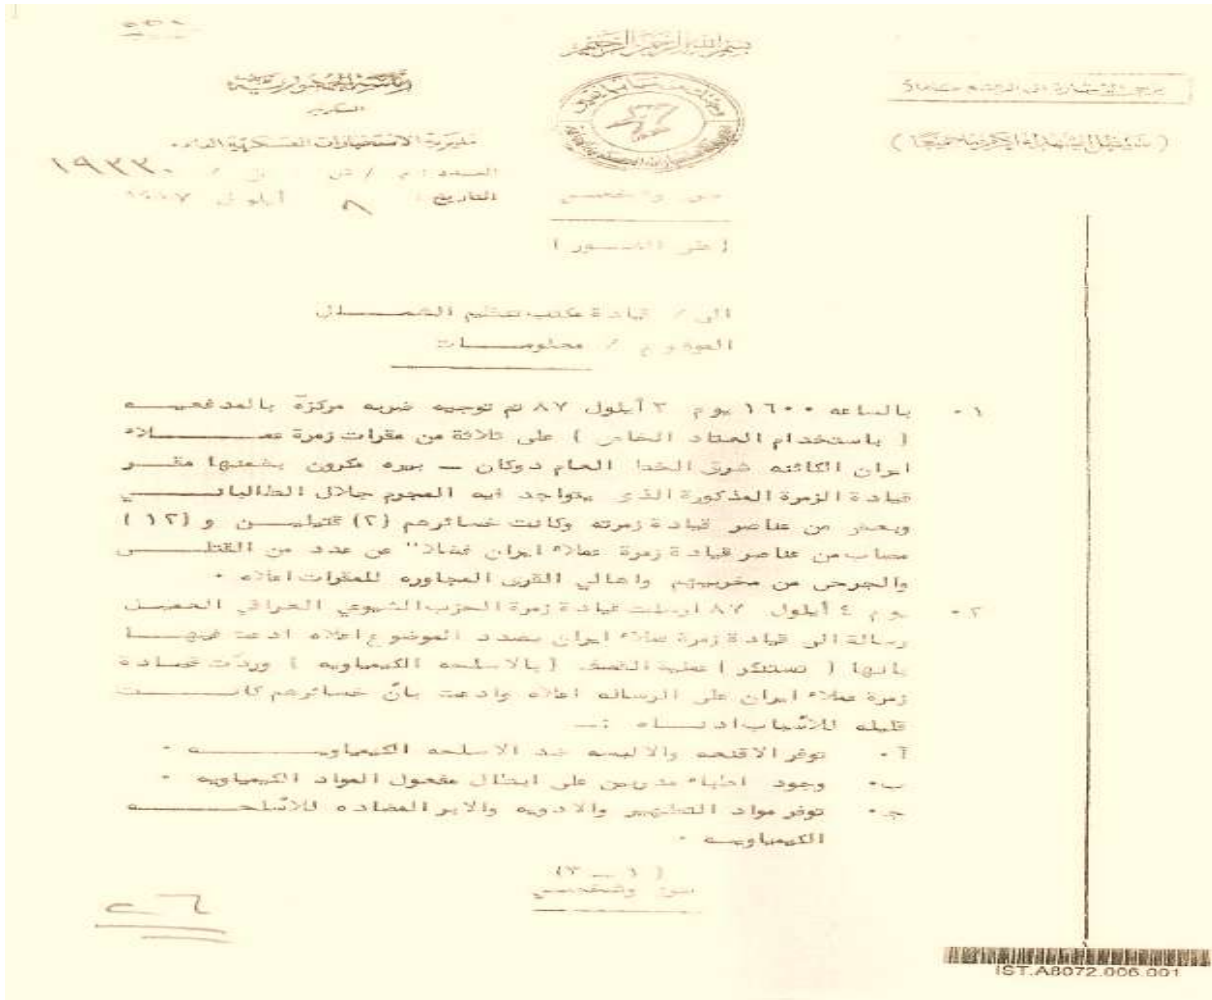 بسم الله الرحمن الرحيم
رئاسة الجمهورية
السكرتير
مديرية الاستخبارات العسكرية العامة
العدد : م / ش / ١٩٣٣٠
التاريخ : ٨ أيلول ١٩٨٧
سري وشخصي
( على الفور )
الى / قيادة مكتب تنظيم الشمال
الموضوع / معلومات
١٠ بالساعه ١٦٠٠ يوم ٣ أيلول ٨٧ تم توجيه ضربه مركزة بالمدفعيه
( باستخدام العتاد الخاص ) على ثلاثة من مقرات زمرة عملاء
ايران الكائنه شرق الخط العام دوكان - بيره مكرون بضمنها مقر
قيادة الزمرة المذكورة الذي يتواجد فيه المجرم جلال الطالباني
وبعض من عناصر قيادة زمرته وكانت خسائرهم (٢) قتيلين و (١٢)
مصاب من عناصر قيادة زمرة عملاء ايران فضلا" عن عدد من القتلى
والجرحى من مخربيهم واهالي القرى المجاوره للمقرات اعلاه ٠
٢٠ يوم ٤ أيلول ٨٧ ارسلت قيادة زمرة الحزب الشيوعي العراقي العميل
رسالة الى قيادة زمرة عملاء ايران بصدد الموضوع اعلاه ادعت فيها
بانها ( تستنكر ) عملية القصف (بالاسلحه الكيمياويه ) وردت قيادة
زمرة عملاء ايران على الرساله اعلاه وادعت بأن خسائرهم كانت
قليله للأسباب ادناه :-
أ٠ توفر الاقنعه والالبسه ضد الاسلحه الكيمياويه ٠
ب٠ وجود اطباء مدربين على ابطال مفعول المواد الكيمياويه ٠
ج٠ توفر مواد التطهير والادويه والابر المضاده للأسلحه
الكيمياويه ٠
( ١ - ٣ )
سري وشخصي
٢٦
IST.A8072.006.001